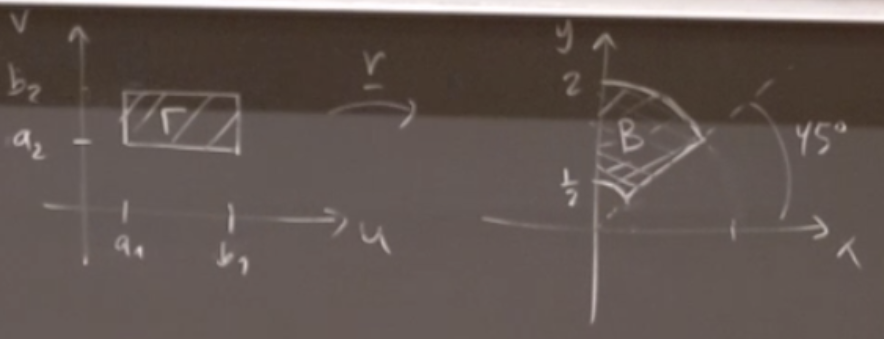 v
b₂
a₂
Γ
a₁
b₁
u
r
y
2
B
1/2
45°
x